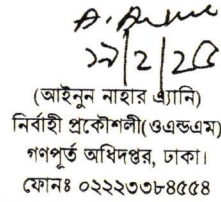 ১৯/২/২৫
(আইনুন নাহার এ্যানি)
নির্বাহী প্রকৌশলী(ওএন্ডএম)
গণপূর্ত অধিদপ্তর, ঢাকা।
ফোনঃ ০২২২৩৩৮৪৫৫৪